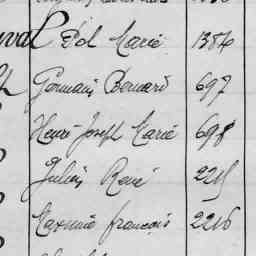 Pol Marie 1384
Germain Bernard 697
Henri Joseph Marie 698
Julien René 2215
Maxime françois 2216